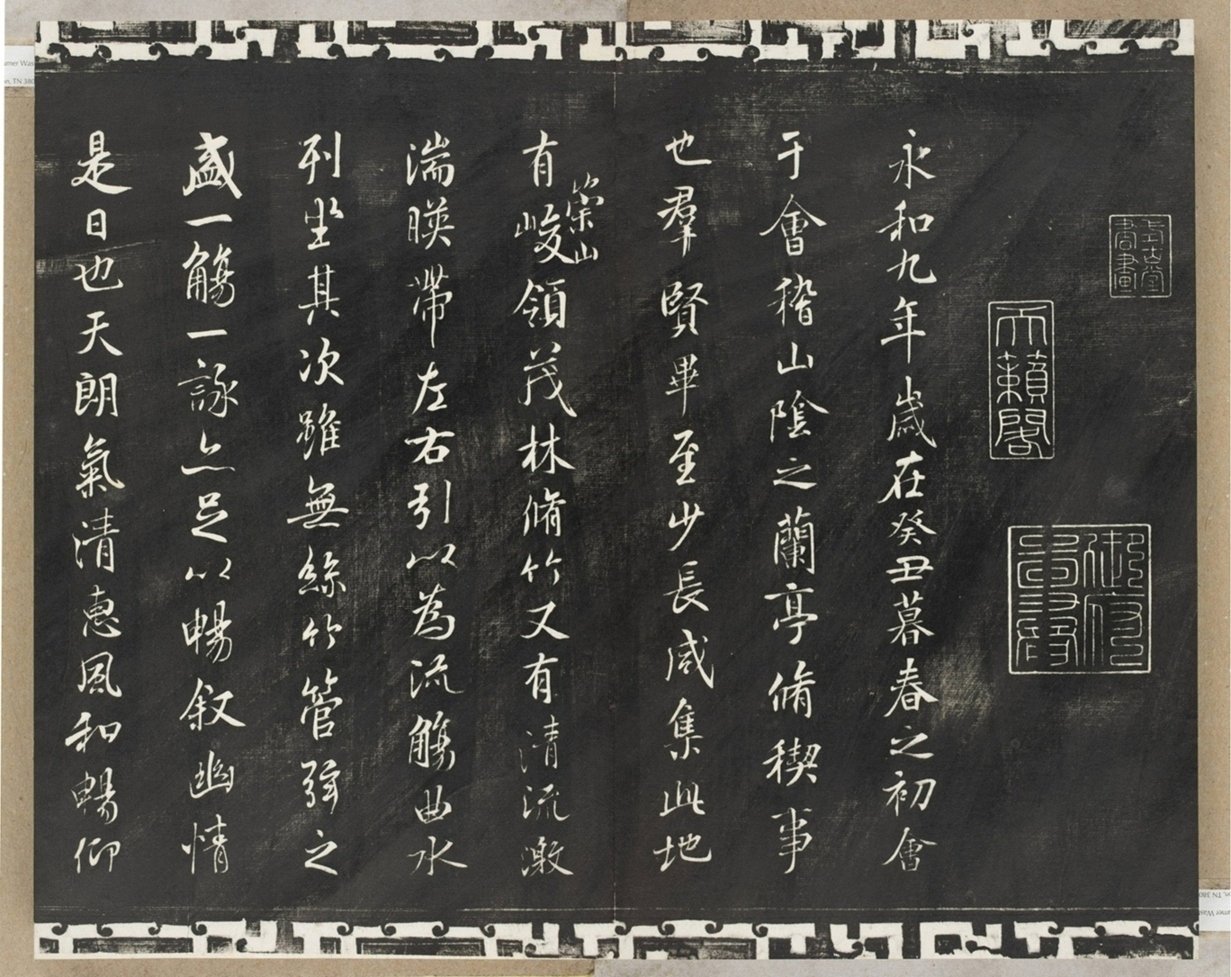 永和九年歲在癸丑暮春之初會
于會稽山隂之蘭亭脩稧事
也羣賢畢至少長咸集此地
有崇山峻領茂林脩竹又有清流激
湍暎帶左右引以為流觴曲水
列坐其次雖無絲竹管弦之
盛一觴一詠亦足以暢叙幽情
是日也天朗氣清惠風和暢仰
天籟閣